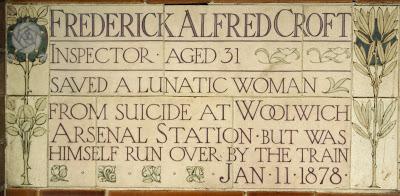 FREDERICK ALFRED CROFT
INSPECTOR · AGED 31
SAVED A LUNATIC WOMAN
FROM SUICIDE AT WOOLWICH
ARSENAL STATION · BUT WAS
HIMSELF RUN OVER BY THE TRAIN
JAN · 11 · 1878 ·